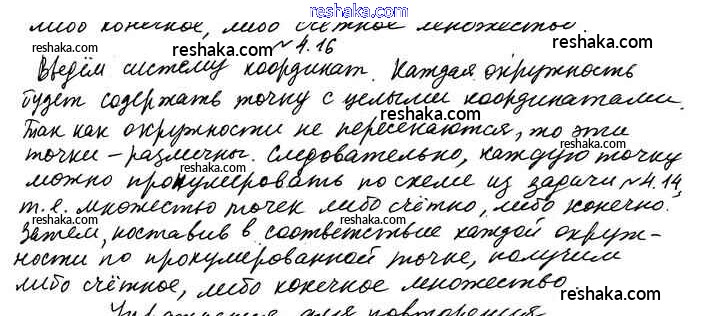 reshaka.ru
либо конечное, либо счётное множество.
№ 4.16
Введём систему координат. Каждая окружность
будет содержать точку с целыми координатами.
Так как окружности не пересекаются, то эти
точки – различны. Следовательно, каждую точку
можно пронумеровать по схеме из задачи № 4.14,
т.е. множество точек либо счётно, либо конечно.
Затем, поставив в соответствие каждой окруж-
ности по пронумерованной точке, получим
либо счётное, либо конечное множество.
Упражнения для повторения